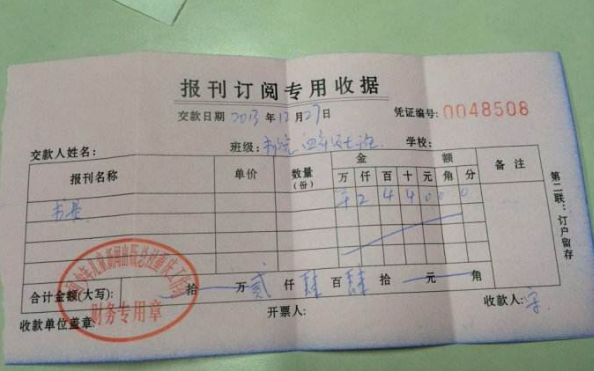 报刊订阅专用收据
交款日期 2013 年 12 月 27 日 凭证编号: 0048508
交款人姓名: 班级: 学校:
报刊名称 单价 数量 (份) 金 额 备注
万 仟 百 十 元 角 分
书费 2 4 4 0 0 0
合计金额(大写): 拾 万 贰 仟 肆 百 肆 拾 元 角
收款单位盖章: 开票人: 收款人:
财务专用章
第二联:订户留存